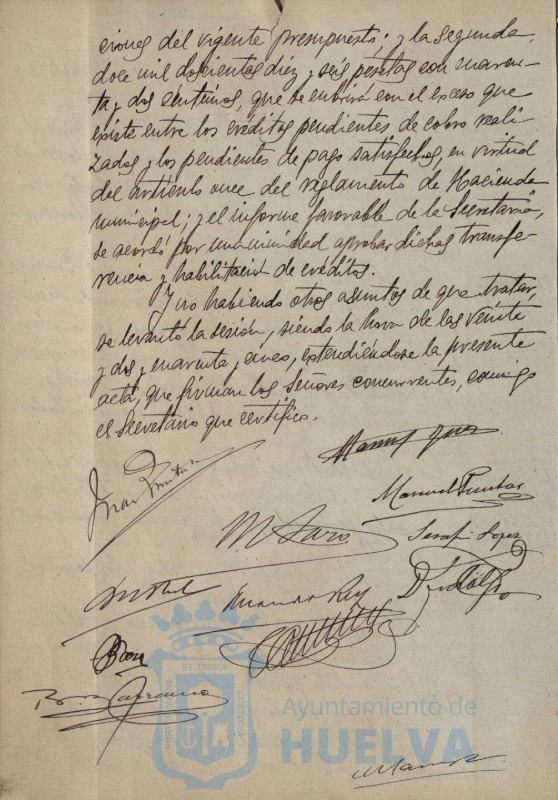 ciones del vigente presupuesto; y la segunda,
doce mil doscientas diez y seis pesetas con cuaren-
ta y dos céntimos, que se cubrirá con el exceso que
existe entre los créditos pendientes de cobro reali-
zados y los pendientes de pago satisfechos, en virtud
del artículo once del reglamento de Hacienda
municipal; y el informe favorable de la Secretaría,
se acordó por unanimidad aprobar dichas transfe-
rencia y habilitación de créditos.
Y no habiendo otros asuntos de que tratar,
se levantó la sesión, siendo la hora de las veinte
y dos y cuarenta y cinco, extendiéndose la presente
acta, que firman los Señores concurrentes, conmigo
el Secretario que certifico.
Manuel
Serafín López
ET TERRA
CUSTODIA
Ayuntamiento de
HUELVA